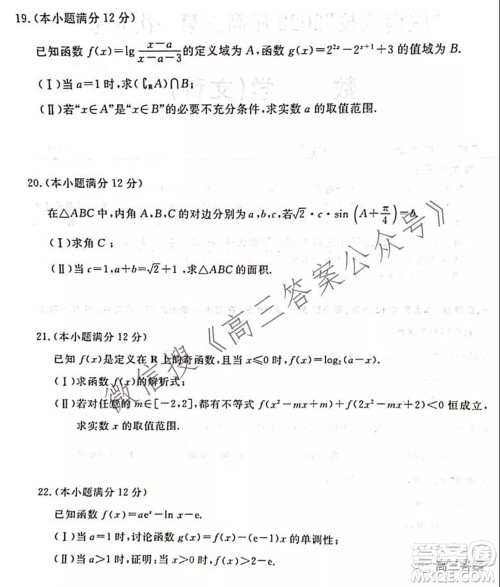 19.(本小题满分12分)
已知函数 f(x)=lg (x-a)/(x-a-3) 的定义域为 A,函数 g(x)=2^{2x}-2^{x+1}+3 的值域为 B.
(Ⅰ)当 a=1 时,求(∁_R A)∩B;
(Ⅱ)若“x∈A”是“x∈B”的必要不充分条件,求实数 a 的取值范围.
20.(本小题满分12分)
在△ABC 中,内角 A、B、C 的对边分别为 a,b,c,若√2·c·sin(A+π/4)=b
(Ⅰ)求角 C;
(Ⅱ)当 c=1,a+b=√2+1,求△ABC 的面积.
21.(本小题满分12分)
已知 f(x)是定义在 R 上的奇函数,且当 x≤0 时,f(x)=log₂(a-x).
(Ⅰ)求函数 f(x)的解析式;
(Ⅱ)若对任意的 m∈[-2,2],都有不等式 f(x²-mx+m)+f(2x²-mx+2)<0 恒成立,
求实数 x 的取值范围.
22.(本小题满分12分)
已知函数 f(x)=ae^x-ln x-e.
(Ⅰ)当 a=1 时,讨论函数 f(x)-(e-1)x 的单调性;
(Ⅱ)当 a>1 时,证明:当 x>0 时,f(x)>2-e.
微信搜《高三答案公众号》
高三答案